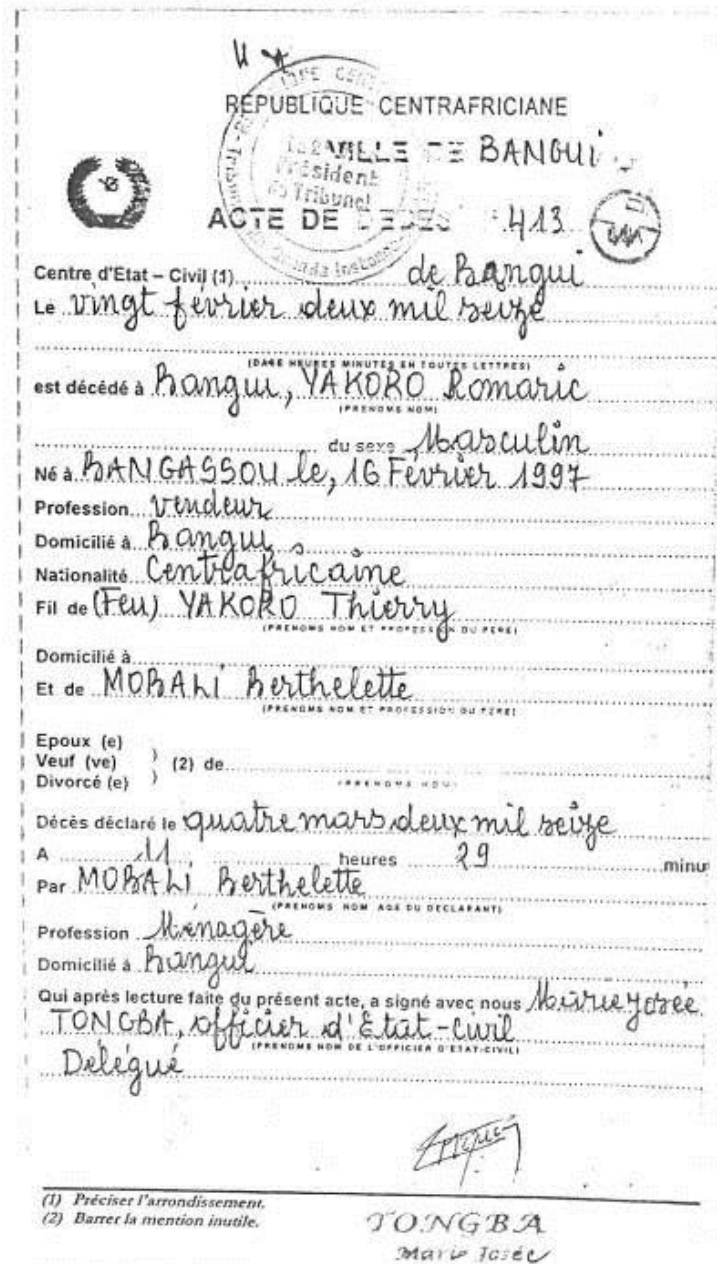 RÉPUBLIQUE CENTRAFRICIANE
VILLE DE BANGUI
Président
du Tribunal
ACTE DE DECES 413
Centre d'Etat – Civil (1) de Bangui
Le vingt février deux mil seize
(DARE HEURES MINUTES EN TOUTES LETTRES)
est décédé à Bangui, YAKORO Romaric
(PRENOMS NOM)
du sexe Masculin
Né à BANGASSOU le, 16 Février 1997
Profession vendeur
Domicilié à Bangui
Nationalité Centrafricaine
Fil de (Feu) YAKORO Thierry
(PRENOMS NOM ET PROFESSION DU PERE)
Domicilié à
Et de MOBALI Berthelette
(PRENOMS NOM ET PROFESSION DU PERE)
Epoux (e)
Veuf (ve) ) (2) de
Divorcé (e) )
(PRENOMS NOM)
Décès déclaré le quatre mars deux mil seize
A 11 heures 29 minu
Par MOBALI Berthelette
(PRENOMS NOM AGE DU DECLARANT)
Profession Ménagère
Domicilié à Bangui
Qui après lecture faite du présent acte, a signé avec nous Marie Josée
TONGBA, officier d'Etat-civil
(PRENOMS NOM DE L'OFFICIER D'ETAT-CIVIL)
Délégué
(1) Préciser l'arrondissement.
(2) Barrer la mention inutile.
TONGBA
Marie Josée